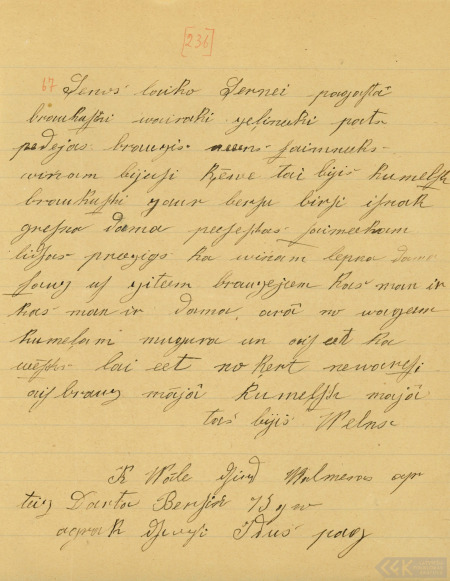 [236]
67 Senos laiko Ternei pagastā
braukuschi wairaki zeļineeki pats
pedejas brauzis weens saimneeks
winam bijusi Ķēwe tai bijis kumelsch
braukuschi zaur bersu birsi isnāk
gresna dama peesehstas saimneekam
lidsas preezigs ka winam lepna dama
sauz us zitem brauzejeem kas man ir
kas man ir dama, arā no wageem
kumeļam mugura un aiseet ka
wehjsch lai eet nokert newareji
aisbrauz mājā kumelsch mājā
tas bijis Welns
K Wāle dsiw Walmeras apr
Darta Bersiņ 75 g w
agrak dsiwoji Idus pag